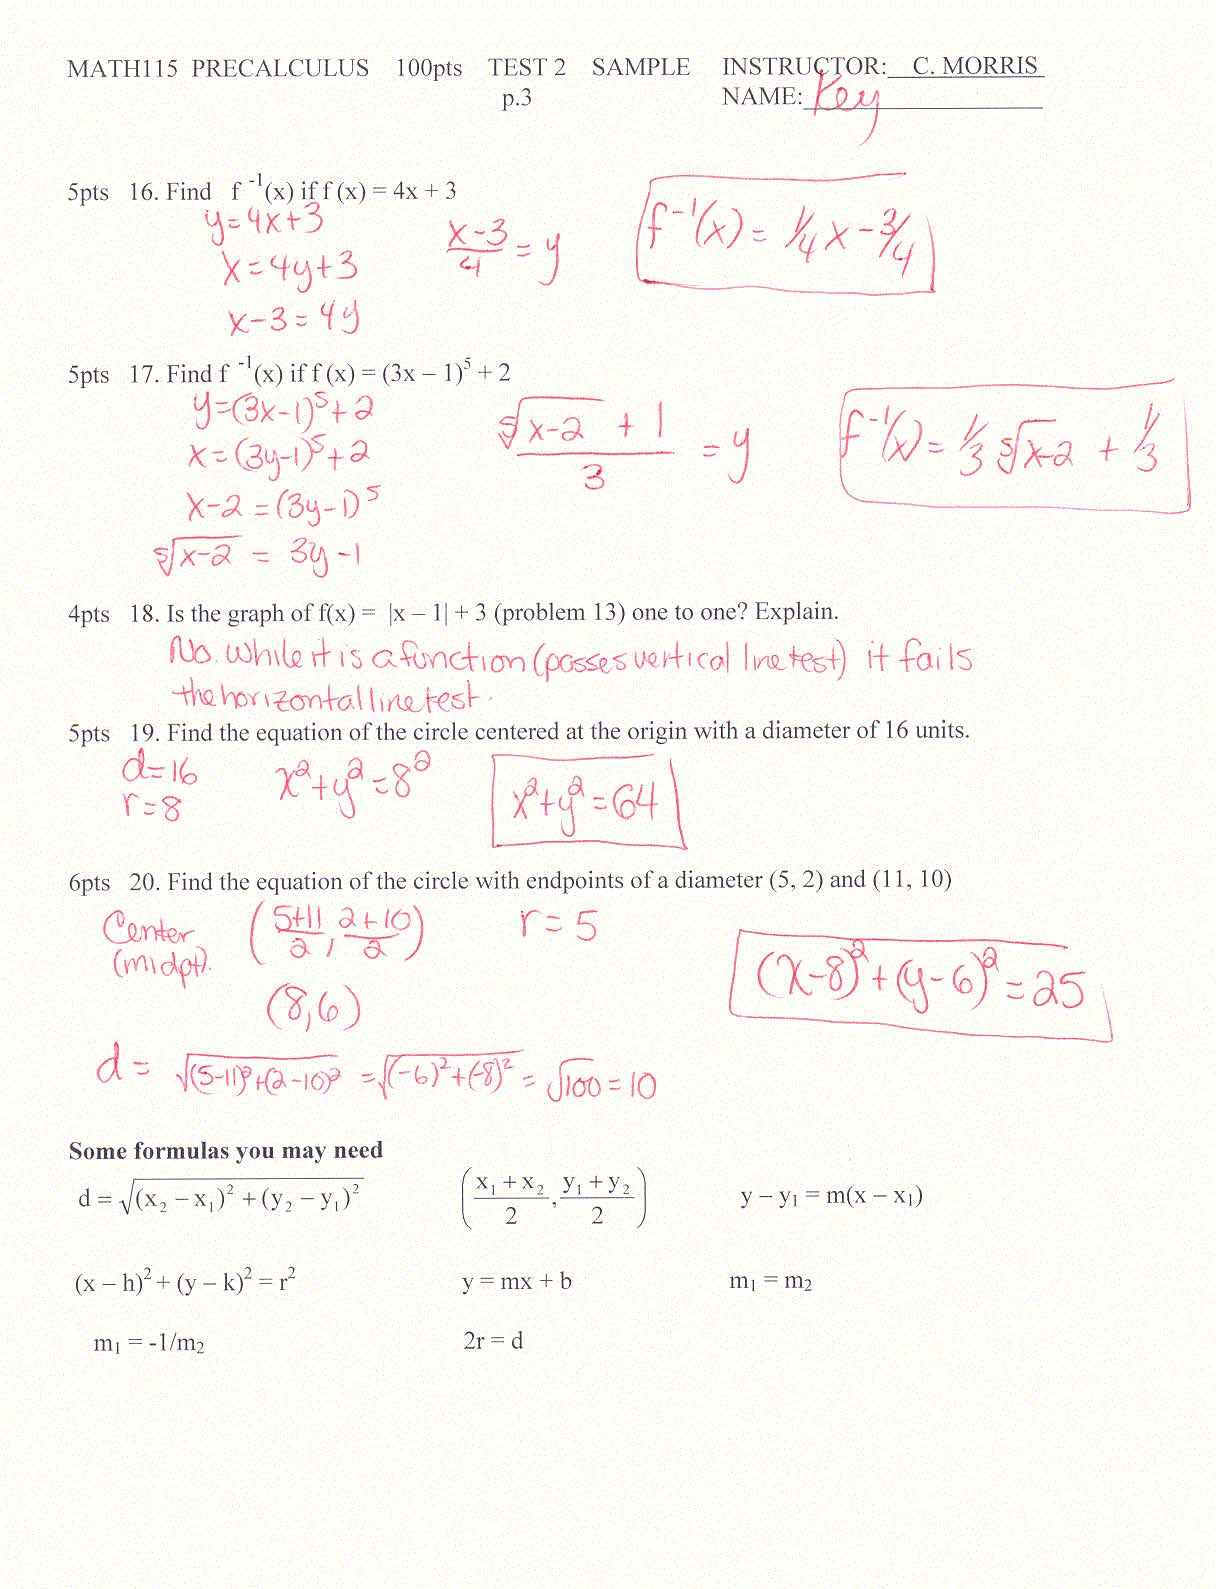 MATH115 PRECALCULUS 100pts TEST 2 SAMPLE INSTRUCTOR: C. MORRIS
p.3 NAME: Key
5pts 16. Find f⁻¹(x) if f (x) = 4x + 3
y=4x+3
x=4y+3
x-3=4y
(x-3)/4 = y
f⁻¹(x) = 1/4 x - 3/4
5pts 17. Find f⁻¹(x) if f (x) = (3x – 1)⁵ + 2
y=(3x-1)⁵+2
x=(3y-1)⁵+2
x-2=(3y-1)⁵
⁵√(x-2) = 3y-1
(⁵√(x-2) + 1)/3 = y
f⁻¹(x) = 1/3 ⁵√(x-2) + 1/3
4pts 18. Is the graph of f(x) = |x – 1| + 3 (problem 13) one to one? Explain.
No. while it is a function (passes vertical line test) it fails
the horizontal line test.
5pts 19. Find the equation of the circle centered at the origin with a diameter of 16 units.
d=16
r=8
x²+y²=8²
x²+y²=64
6pts 20. Find the equation of the circle with endpoints of a diameter (5, 2) and (11, 10)
Center
(midpt).
((5+11)/2, (2+10)/2)
(8,6)
r=5
(x-8)²+(y-6)²=25
d = √((5-11)²+(2-10)²) = √((-6)²+(-8)²) = √100 = 10
Some formulas you may need
d = √((x₂ – x₁)² + (y₂ – y₁)²)
((x₁ + x₂)/2, (y₁ + y₂)/2)
y – y₁ = m(x – x₁)
(x – h)² + (y – k)² = r²
y = mx + b
m₁ = m₂
m₁ = -1/m₂
2r = d